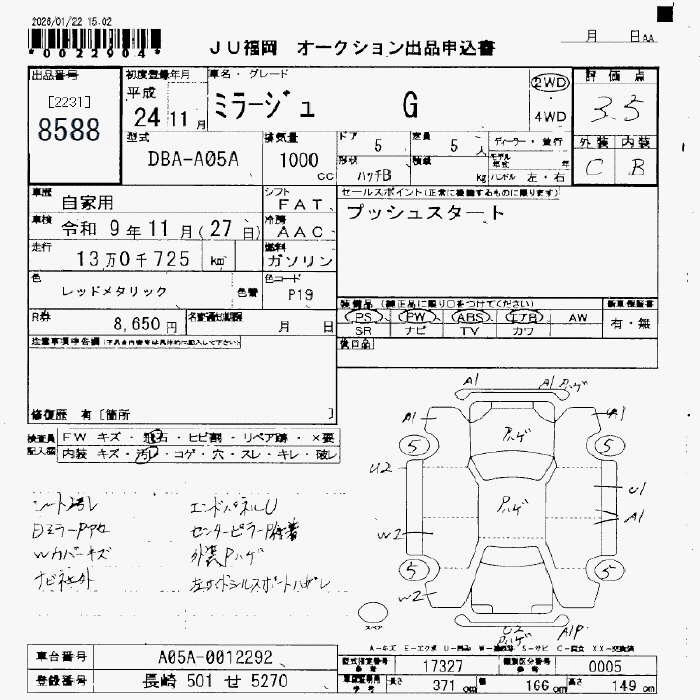 2026/01/22 15.02
*0022904*
JU福岡 オークション出品申込書
月 日AA
出品番号
[2231]
8588
初度登録年月
平成
24 11 月
車名・グレード
ミラージュ G
2WD
4WD
評価点
3.5
外装 内装
C B
型式
DBA-A05A
排気量
1000 cc
ドア 5
定員 5 人
形状 ハッチB
積載 kg
ディーラー・並行
モデル年式 年
ハンドル 左・右
車歴
自家用
シフト
FAT
車検
令和 9 年 11 月 (27 日)
冷房
AAC
走行
13 万 0 千 725 km
燃料
ガソリン
セールスポイント(正常に機能するものに限ります)
プッシュスタート
色
レッドメタリック
色替
色コード
P19
R券
8,650 円
名変期限
月 日
装備品 (純正品に限り○をつけてください)
PS PW ABS エアB AW
SR ナビ TV カワ
新車保証書
有・無
後日品
注意事項申告欄
修復歴 有 [箇所 ]
検査員記入欄
FW キズ・飛石・ヒビ割・リペア跡・×要
内装 キズ・汚レ・コゲ・穴・スレ・キレ・破レ
シート汚レ
Wカバーキズ
エンドパネルU
外装Pハゲ
A1
A1 Pハゲ
A1
Pハゲ
A1
5
5
U2
Pハゲ
U1
A1
W2
5
5
W2
スペア
U2
Pハゲ
A1P
車台番号
A05A-0012292
登録番号
長崎 501 せ 5270
型式指定番号
17327
類別区分番号
0005
長さ 371 cm
幅 166 cm
高さ 149 cm